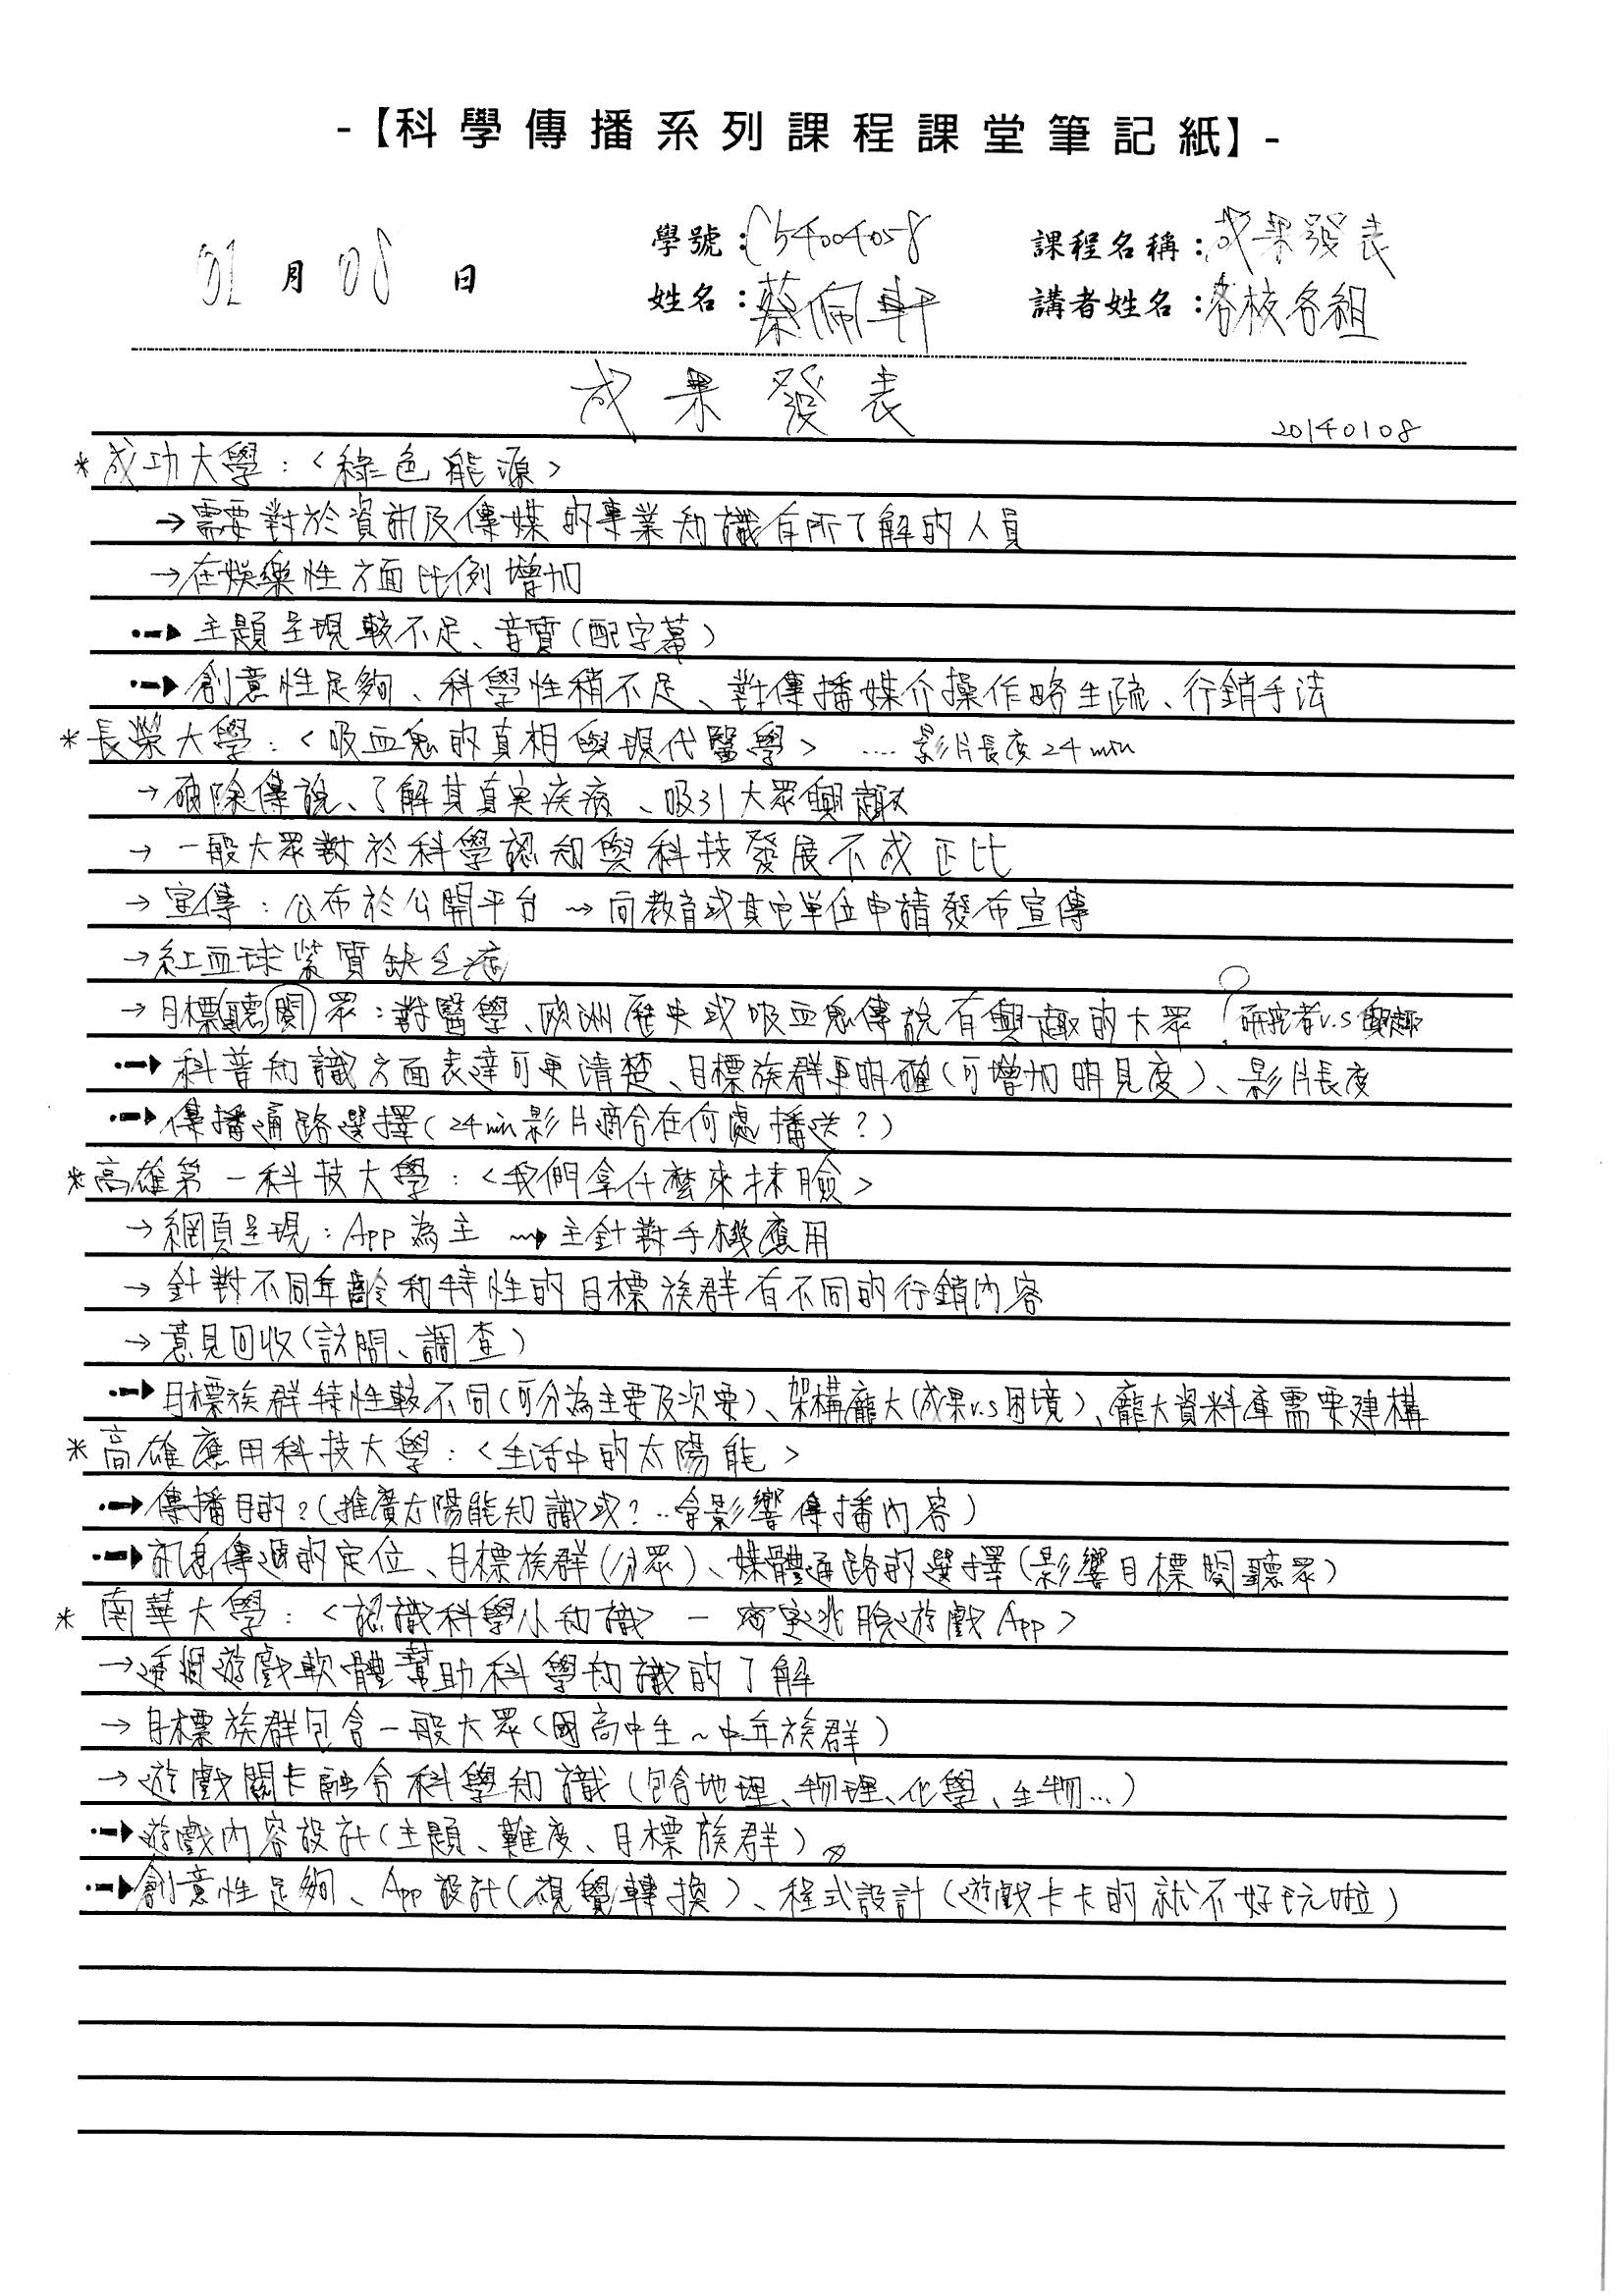 -【科學傳播系列課程課堂筆記紙】-
學號：C54004058 課程名稱：成果發表
01 月 08 日 姓名：蔡佩軒 講者姓名：各校各組
成果發表 20140108
*成功大學：<綠色能源>
→需要對於資訊及傳媒的專業知識有所了解的人員
→在娛樂性方面比例增加
→主題呈現較不足、音質(配字幕)
→創意性足夠、科學性稍不足、對傳播媒介操作略生疏、行銷手法
*長榮大學：<吸血鬼的真相與現代醫學> .... 影片長度24min
→破除傳說、了解其真実疾病、吸引大眾興趣
→一般大眾對於科學認知與科技發展不成正比
→宣傳：公布於公開平台 ⇝ 向教育或其它單位申請發布宣傳
→紅血球紫質缺乏症
→目標(聽)閱眾：對醫學、歐洲歷史或吸血鬼傳說有興趣的大眾？研究者v.s興趣
→科普知識方面表達可更清楚、目標族群更明確(可增加明見度)、影片長度
→傳播通路選擇(24min影片適合在何處播送?)
*高雄第一科技大學：<我們拿什麼來抹臉>
→網頁呈現：App為主 ⇝ 主針對手機應用
→針對不同年齡和特性的目標族群有不同的行銷內容
→意見回收(訪問、調查)
→目標族群特性較不同(可分為主要及次要)、架構龐大(成果v.s困境)、龐大資料庫需要建構
*高雄應用科技大學：<生活中的太陽能>
→傳播目的?(推廣太陽能知識或?..會影響傳播內容)
→訊息傳遞的定位、目標族群(分眾)、媒體通路的選擇(影響目標閱聽眾)
*南華大學：<認識科學小知識 — 密室逃脫遊戲App>
→透過遊戲軟體幫助科學知識的了解
→目標族群包含一般大眾(國高中生~中年族群)
→遊戲關卡融合科學知識(包含地理、物理、化學、生物...)
→遊戲內容設計(主題、難度、目標族群)。
→創意性足夠、App設計(視覺轉換)、程式設計(遊戲卡卡的就不好玩啦)